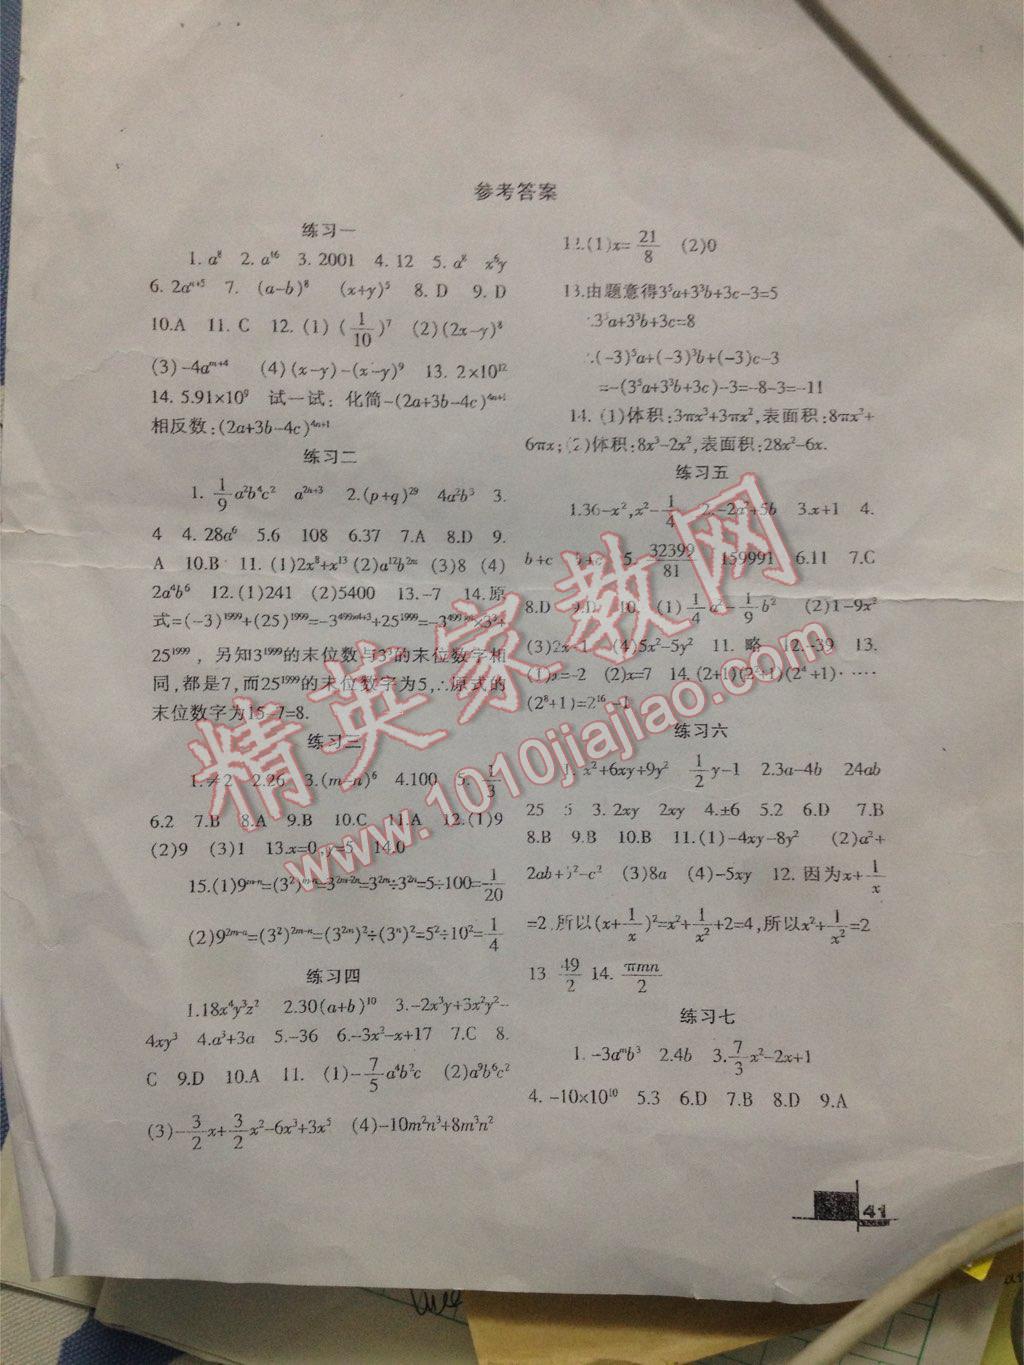 参考答案
练习一
1. a⁸ 2. a¹⁶ 3. 2001 4. 12 5. a⁸ x⁶y
6. 2aⁿ⁺⁵ 7. (a-b)⁸ (x+y)⁵ 8. D 9. D
10.A 11. C 12. (1) (1/10)⁷ (2)(2x-y)⁸
(3)-4aᵐ⁺⁴ (4)(x-y)-(x-y)⁹ 13. 2×10¹²
14. 5.91×10⁹ 试一试: 化简-(2a+3b-4c)⁴ⁿ⁺¹
相反数:(2a+3b-4c)⁴ⁿ⁺¹
练习二
1. 1/9 a²b⁴c² a²ⁿ⁺³ 2.(p+q)²⁹ 4a²b³ 3.
4 4. 28a⁶ 5.6 108 6.37 7.A 8.D 9.
A 10.B 11. (1)2x⁸+x¹³ (2)a¹²b²ᵐ (3)8 (4)
2a⁴b⁶ 12.(1)241 (2)5400 13.-7 14.原
式=(-3)¹⁹⁹⁹+(25)¹⁹⁹⁹=-3⁴⁹⁹ˣ⁴⁺³+25¹⁹⁹⁹=-3⁴⁹⁹ˣ⁴×3³+
25¹⁹⁹⁹ , 另知3¹⁹⁹⁹的末位数与3³的末位数字相
同,都是7,而25¹⁹⁹⁹的末位数字为5,∴原式的
末位数字为15-7=8.
练习三
1.≠2 2.26 3.(m-n)⁶ 4.100 5. 1/3
6.2 7.B 8.A 9.B 10.C 11.A 12.(1)9
(2)9 (3)1 13.x=0,y=5 14.0
15.(1)9ᵐ⁻ⁿ=(3²)ᵐ⁻ⁿ=3²ᵐ⁻²ⁿ=3²ᵐ÷3²ⁿ=5÷100=1/20
(2)9²ᵐ⁻ⁿ=(3²)²ᵐ⁻ⁿ=(3²ᵐ)²÷(3ⁿ)²=5²÷10²=1/4
练习四
1.18x⁴y³z² 2.30(a+b)¹⁰ 3.-2x³y+3x²y²-
4xy³ 4.a³+3a 5.-36 6.-3x²-x+17 7.C 8.
C 9.D 10.A 11. (1)-7/5 a⁴b²c (2)a⁹b⁶c²
(3)-3/2 x+3/2 x²-6x³+3x⁵ (4)-10m²n³+8m³n²
12.(1)x=21/8 (2)0
13.由题意得3⁵a+3³b+3c-3=5
∴3⁵a+3³b+3c=8
∴(-3)⁵a+(-3)³b+(-3)c-3
=-(3⁵a+3³b+3c)-3=-8-3=-11
14. (1)体积:3πx³+3πx²,表面积:8πx²+
6πx;(2)体积:8x³-2x²,表面积:28x²-6x.
练习五
1.36-x²,x²-1/4 2.-2a²+5b 3.x+1 4.
b+c b+c 5. 32399/81 159991 6.11 7.C
8.D 9.D 10. (1) 1/4 a²-1/9 b² (2)1-9x²
(3)2x-1 (4)5x²-5y² 11. 略 12.-39 13.
(1)x=-2 (2)x=7 14. (2+1)(2²+1)(2⁴+1)······
(2⁸+1)=2¹⁶-1
练习六
1. x²+6xy+9y² 1/2 y-1 2.3a-4b 24ab
25 5 3. 2xy 2xy 4.±6 5.2 6.D 7.B
8.B 9.B 10.B 11.(1)-4xy-8y² (2)a²+
2ab+b²-c² (3)8a (4)-5xy 12. 因为x+1/x
=2,所以(x+1/x)²=x²+1/x²+2=4,所以x²+1/x²=2
13 49/2 14. πmn/2
练习七
1. -3aᵐb³ 2.4b 3. 7/3 x²-2x+1
4. -10×10¹⁰ 5.3 6.D 7.B 8.D 9.A
41
精英家教网
www.1010jiajiao.com